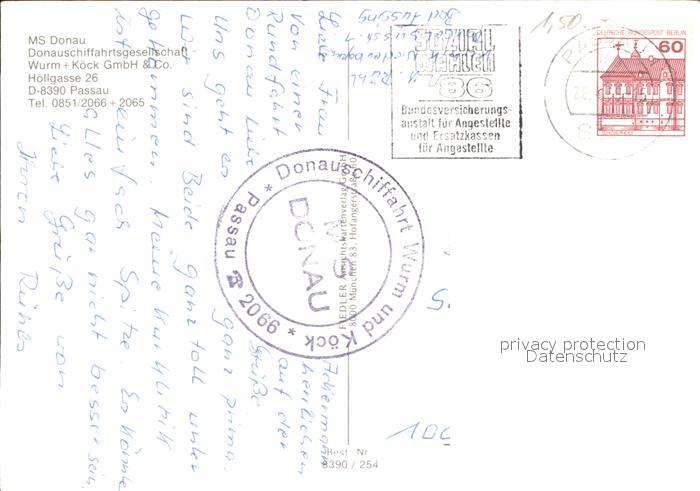 MS Donau
Donauschiffahrtsgesellschaft
Wurm + Köck GmbH & Co.
Höllgasse 26
D-8390 Passau
Tel. 0851/2066 + 2065
1,50
SOZIAL
WAHLEN
'86
Bundesversicherungs-
anstalt für Angestellte
und Ersatzkassen
für Angestellte
PASSAU
DEUTSCHE BUNDESPOST BERLIN
60
Donauschiffahrt Wurm und Köck * Passau ☎ 2066 *
MS
DONAU
FIEDLER Ansichtskartenverlag GmbH
8000 München 83, Hofangerstraße
Bad Füssing
Liebe Frau Ackermann
Von einer herrlichen
Rundfahrt auf der
Donau liebe Grüße
Uns geht es ganz prima.
Wir sind Beide ganz toll unter
gekommen. Meine Kurklinik
ist einfach Spitze. Es könnte
alles gar nicht besser sein,
Liebe Grüße von
Ihren
100
Best. Nr.
8390 / 254
privacy protection
Datenschutz